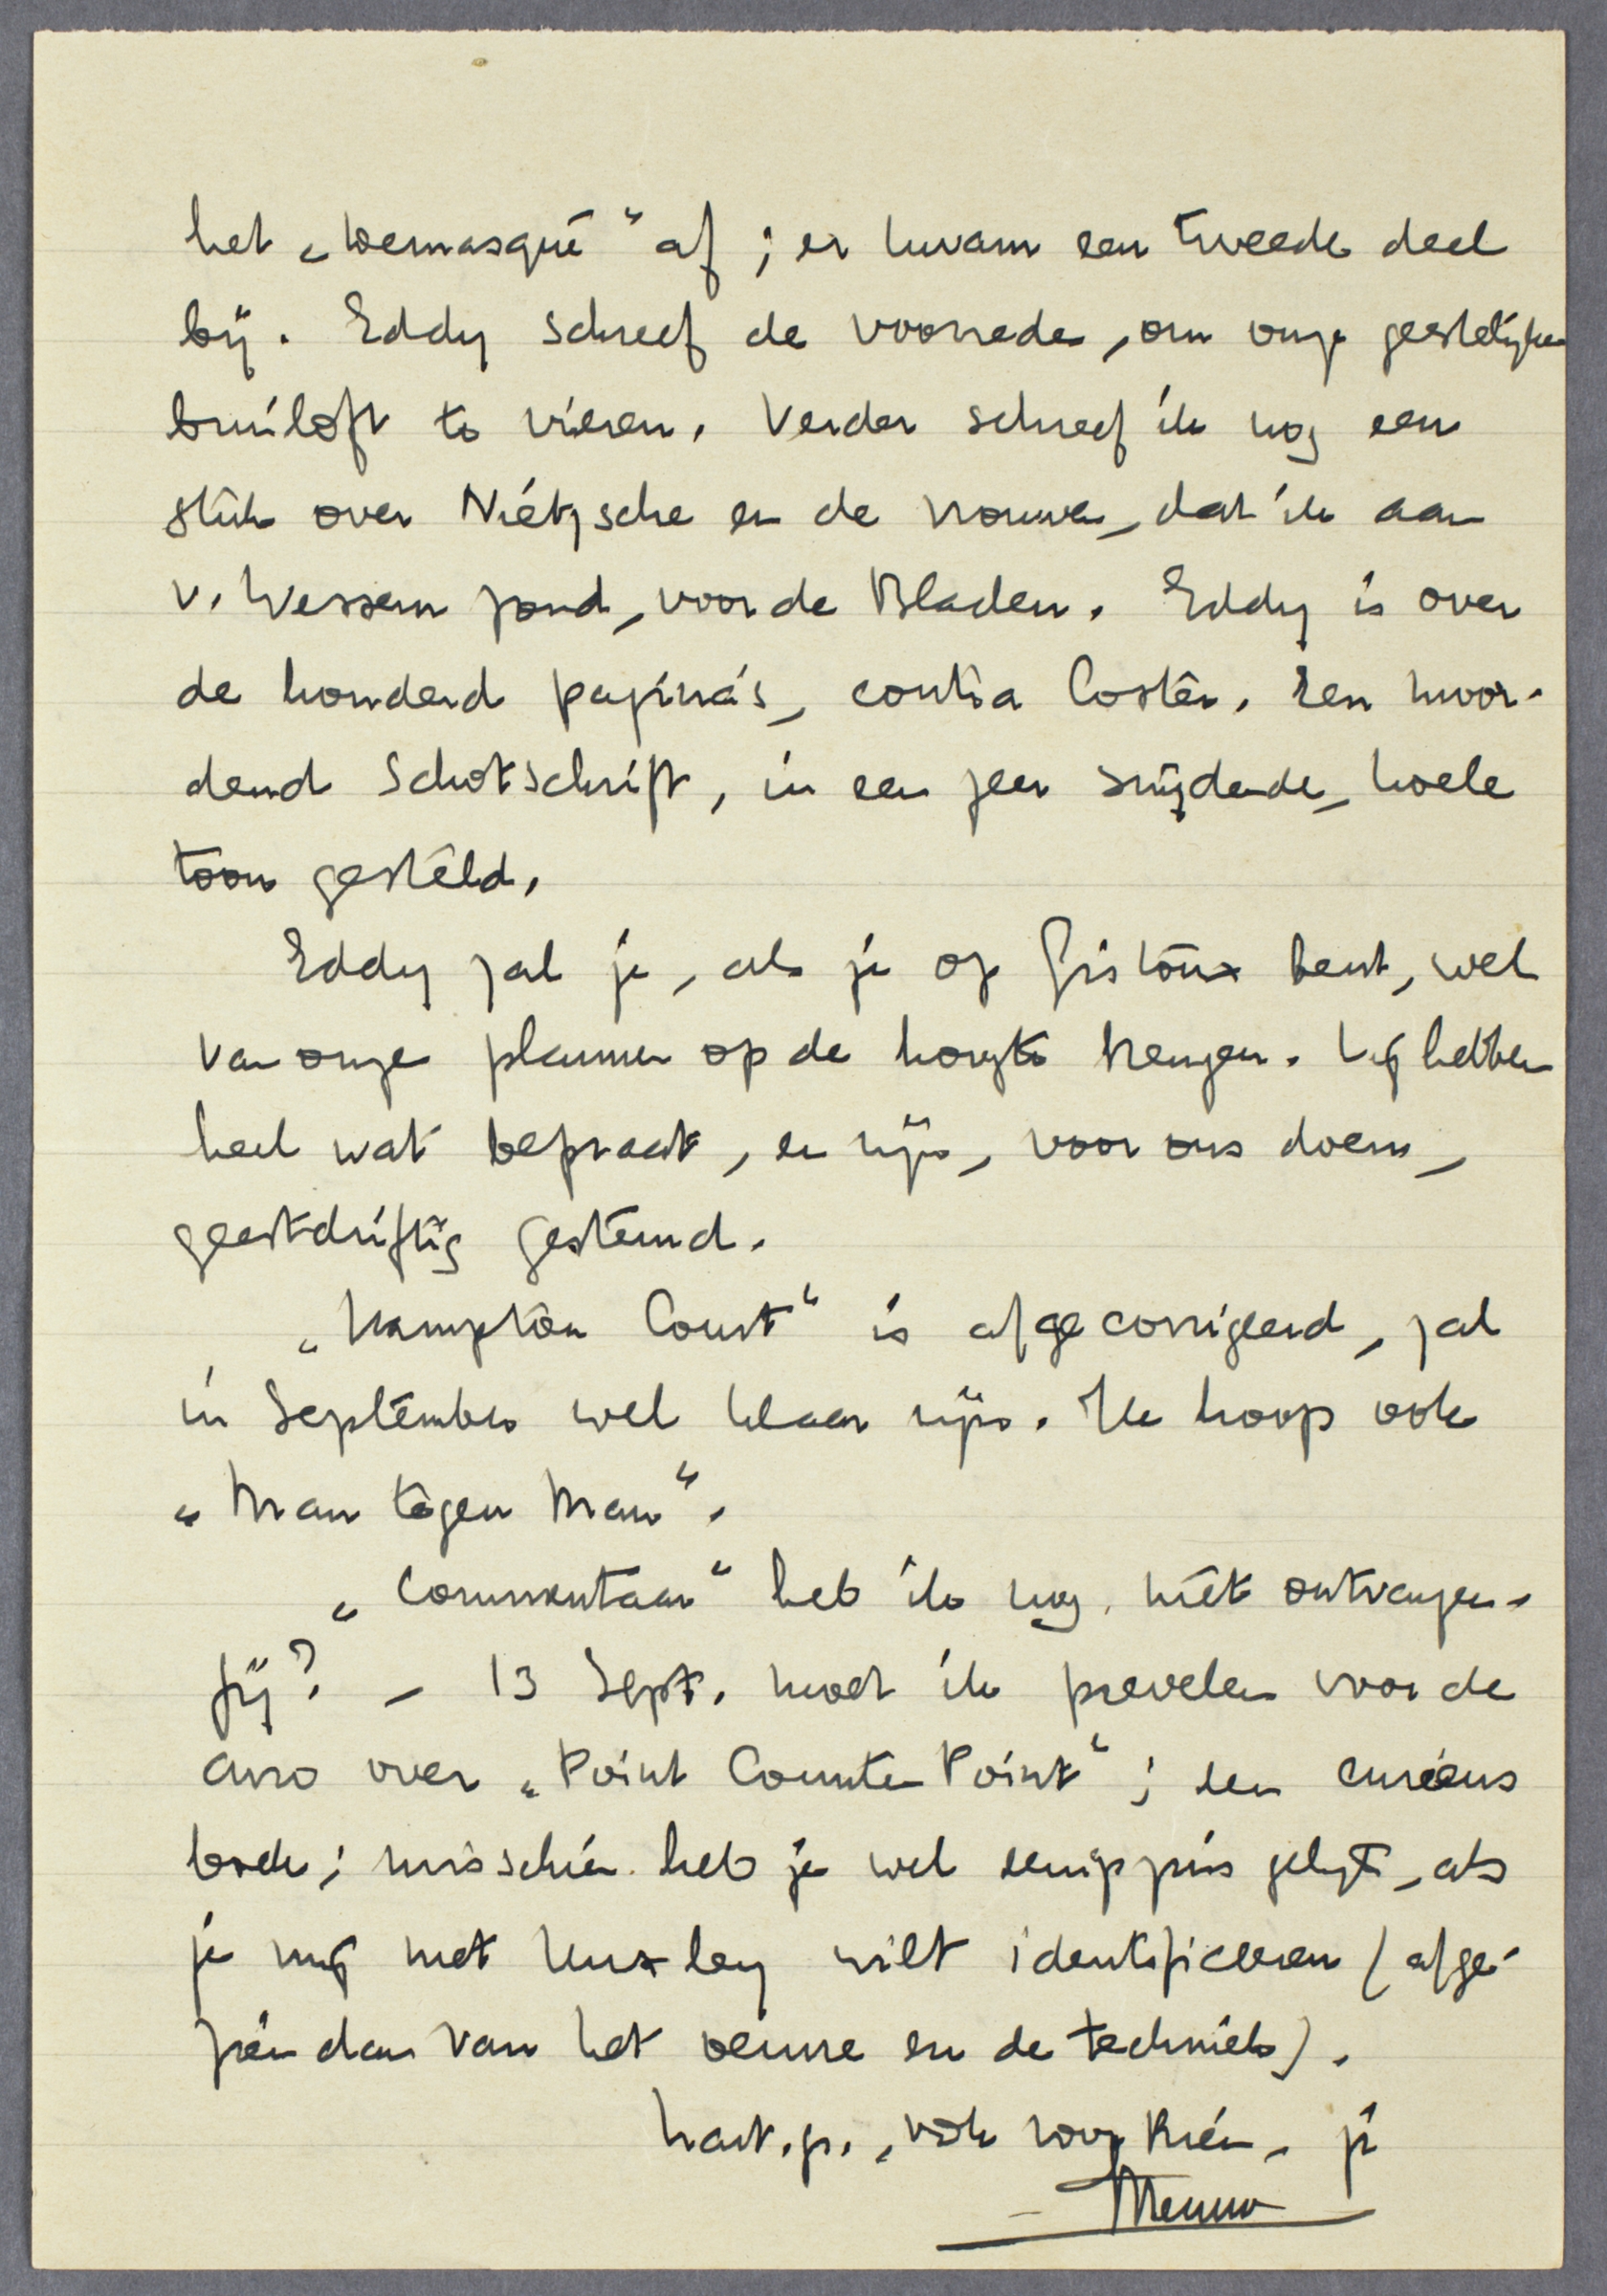 het „Demasqué" af; er kwam een tweede deel
bij. Eddy schreef de voorrede, om onze geestelijke
bruiloft te vieren. Verder schreef ik nog een
stuk over Nietzsche en de vrouwen, dat ik aan
v. Wessem zond, voor de Bladen. Eddy is over
de honderd pagina's, contra Coster. Een moor-
dend schotschrift, in een zeer snijdende, koele
toon gesteld.
Eddy zal je, als je op Gistoux bent, wel
van onze plannen op de hoogte brengen. Wij hebben
heel wat bepraat, en zijn, voor ons doen,
geestdriftig gestemd.
„Hampton Court" is afgecorrigeerd, zal
in September wel klaar zijn. Ik hoop ook
„Man tegen Man".
„Commentaar" heb ik nog niet ontvangen.
Jij? – 13 Sept. moet ik prevelen voor de
Avro over „Point Counter Point"; een curieus
boek; misschien heb je wel eenigszins gelijk, als
je mij met Huxley wilt identificeeren (afge-
zien dan van het oeuvre en de techniek).
Hart. gr., ook voor Rien, je
Menno